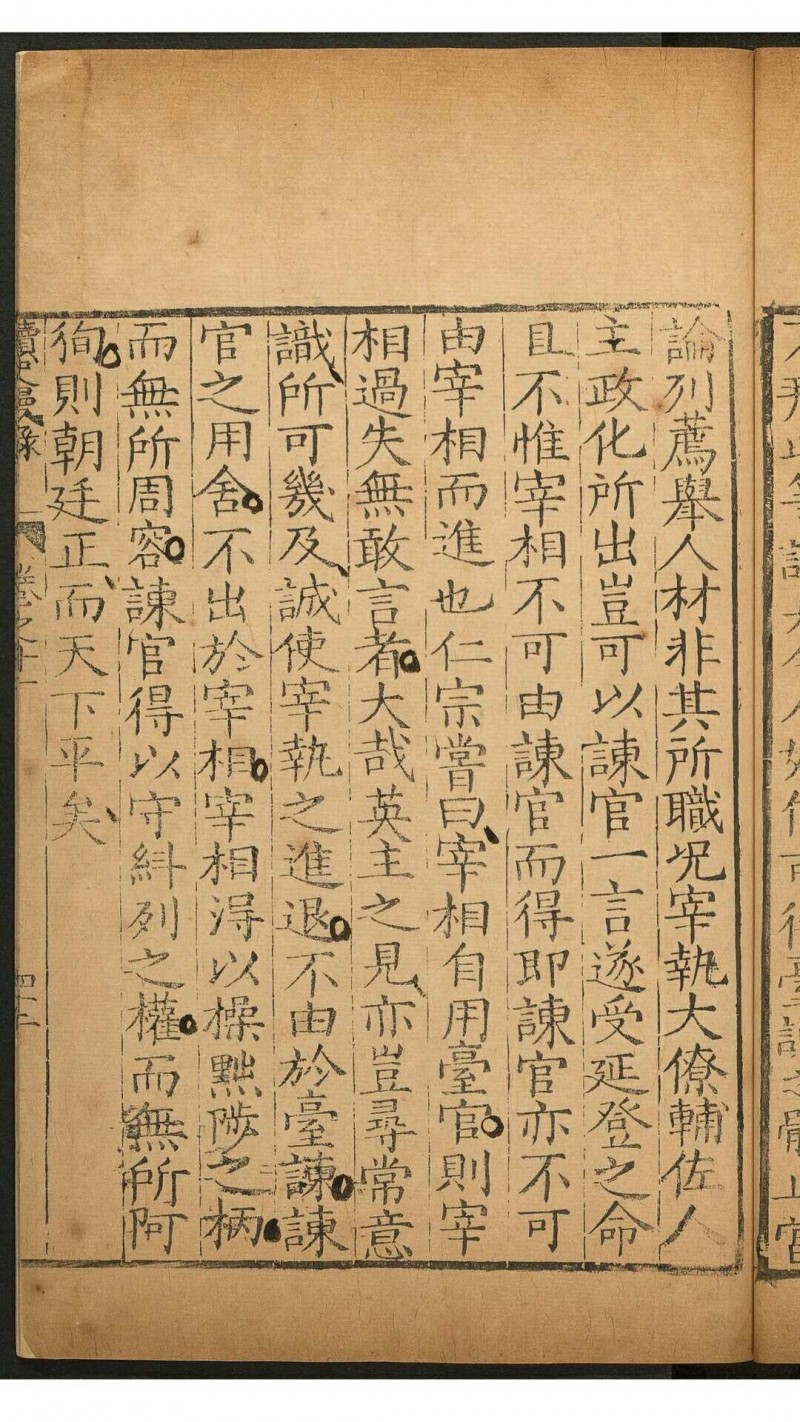 論列薦舉人材非其所職况宰執大僚輔佐人
主政化所出豈可以諫官一言遂受延登之命
且不惟宰相不可由諫官而得即諫官亦不可
由宰相而進也仁宗嘗曰宰相自用臺官則宰
相過失無敢言者大哉英主之見亦豈尋常意
識所可幾及誠使宰執之進退不由於臺諫諫
官之用舍不出於宰相宰相淂以操黜陟之柄
而無所周容諫官得以守糾列之權而無所阿
狥則朝廷正而天下平矣